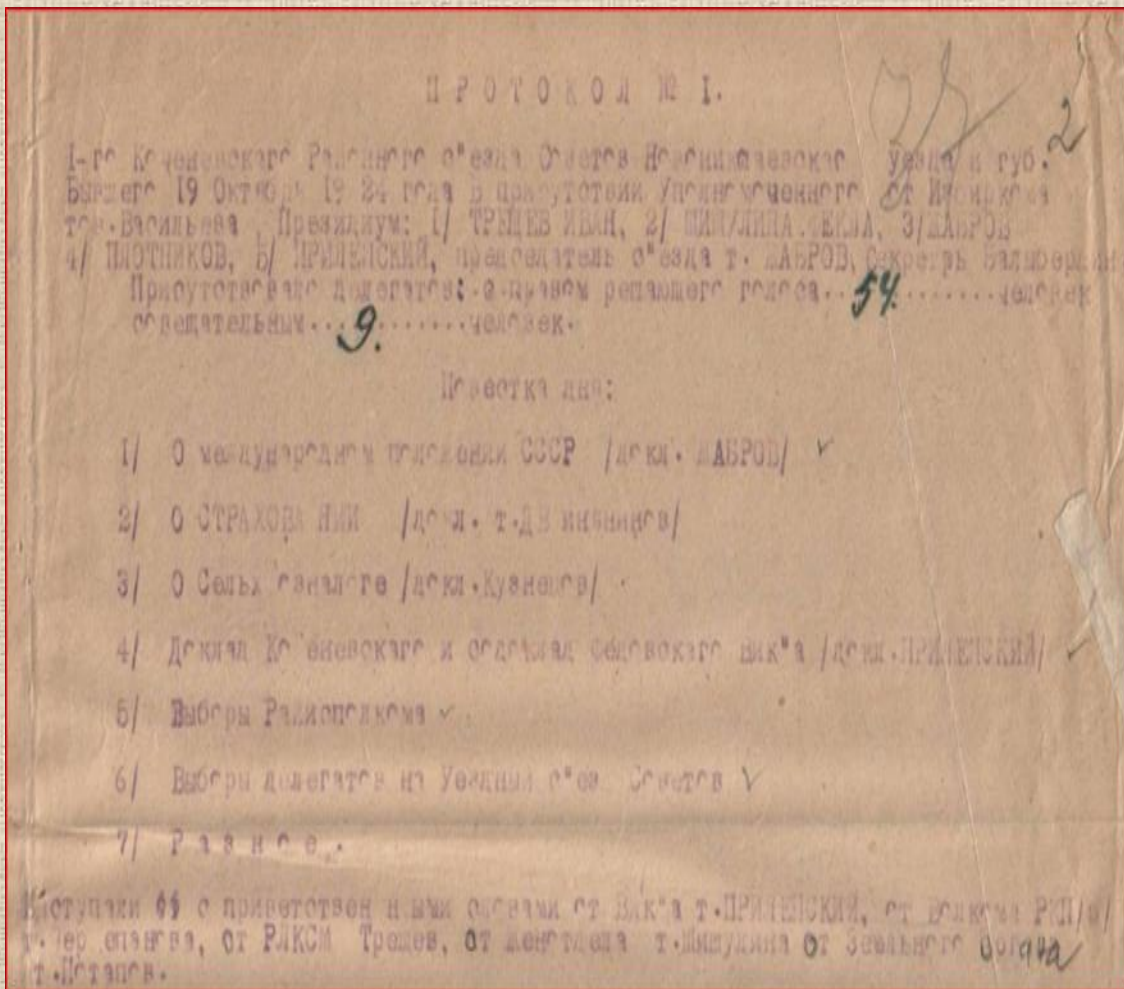 2
ПРОТОКОЛ № I.
I-го Коченевского Районного с"езда Советов Новониколаевског уезда и губ.
Бывшего 19 Октября 19 24 года В присутствии Уполномоченного от
тов.Васильева Президиум: I/ ТРЕЩЕВ ИВАН, 2/ ФЕКЛА, 3/ШАБРОВ
4/ ПЛОТНИКОВ, 5/ ПРИЛЕПСКИЙ, председатель с"езда т. ШАБРОВ, Секретрь
Присутствовало делегатов: с правом решающего голоса..54.......человек
совещательным...9.......человек.
Повестка дня:
I/ О международном положении СССР /докл. ШАБРОВ/
2/ О СТРАХОВА НИИ /докл. т.
3/ О Сельх озналоге /докл.Кузнецов/
4/ Доклад Ко еневского и содоклад Федовского Вик"а /докл.ПРИЛЕПСКИЙ/
5/ Выборы
6/ Выборы делегатов на Уездный с"ез Советов
7/ Р а з н о е .
с приветствен ными словами от Вик"а т.ПРИЛЕПСКИЙ, от Волкома РКП/б/
т. от РЛКСМ Трещев, от женотдела т. от Земельного
т.Потапов.